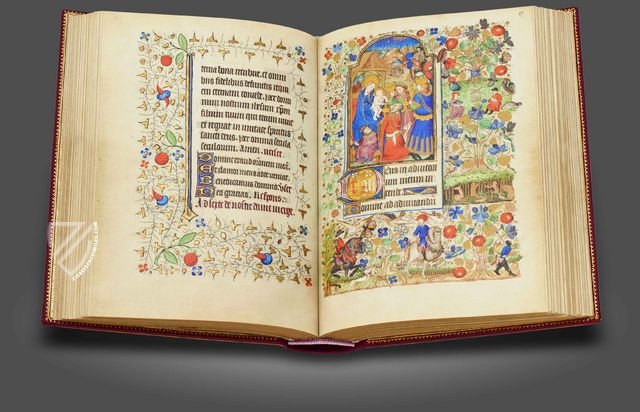 terna dona retribue. et omni
bus fidelibus defunctis requi
em eternam concede. per dom
num nostrum ihesum xpm
filium tuum qui tecum uiuit
et regnat in unitate spiritus
sancti deus. per omnia secula
seculorum. Amen. verset
Domine exaudi oronem meā.
Et clamor meus ad te veniat.
Benedicamus domino. verset
Deo gratias. Respons.
A dexte de nostre
Deus in adiutori
um meum in
tend
Domine ad adiuuandū